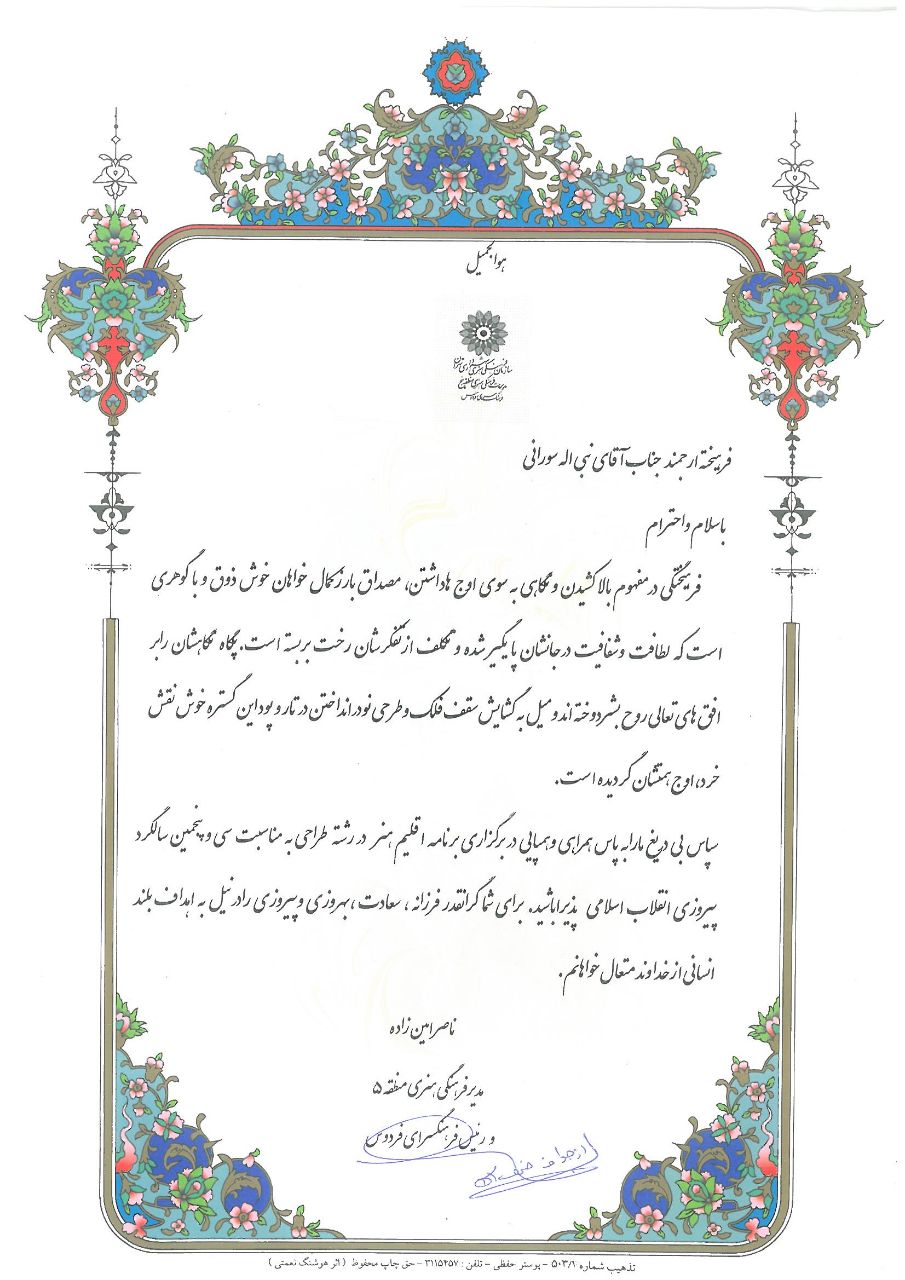 هوالجمیل
سازمان فرهنگی هنری شهرداری تهران
مدیریت فرهنگی هنری منطقه پنج
فرهنگسرای فردوس
فریخته ارجمند جناب آقای نبی اله سورانی
باسلام و احترام
فریختگی در مفهوم بالا کشیدن و نگاهی به سوی اوج ها داشتن، مصداق بارز کمال خواهان خوش ذوق و با گوهری
است که لطافت و شفافیت در جانشان پایگیر شده و تکلف از تفکرشان رخت بر بسته است. پگاه نگاهشان را بر
افق های تعالی روح بشر دوخته اند و میل به گشایش سقف فلک و طرحی نو در انداختن در تار و پود این گستره خوش نقش
خرد، اوج همتشان گردیده است.
سپاس بی دریغ ما را به پاس همراهی و همپایی در برگزاری برنامه اقلیم هنر در رشته طراحی به مناسبت سی و پنجمین سالگرد
پیروزی انقلاب اسلامی پذیرا باشید. برای شما گرانقدر فرزانه ، سعادت ، بهروزی و پیروزی را در نیل به اهداف بلند
انسانی از خداوند متعال خواهانم .
ناصر امین زاده
مدیر فرهنگی هنری منطقه ۵
و رئیس فرهنگسرای فردوس
تذهیب شماره ۵۰۳/۱ - پوستر حفظی - تلفن : ۳۱۱۵۲۵۷ - حق چاپ محفوظ ( اثر هوشنگ نعمتی )